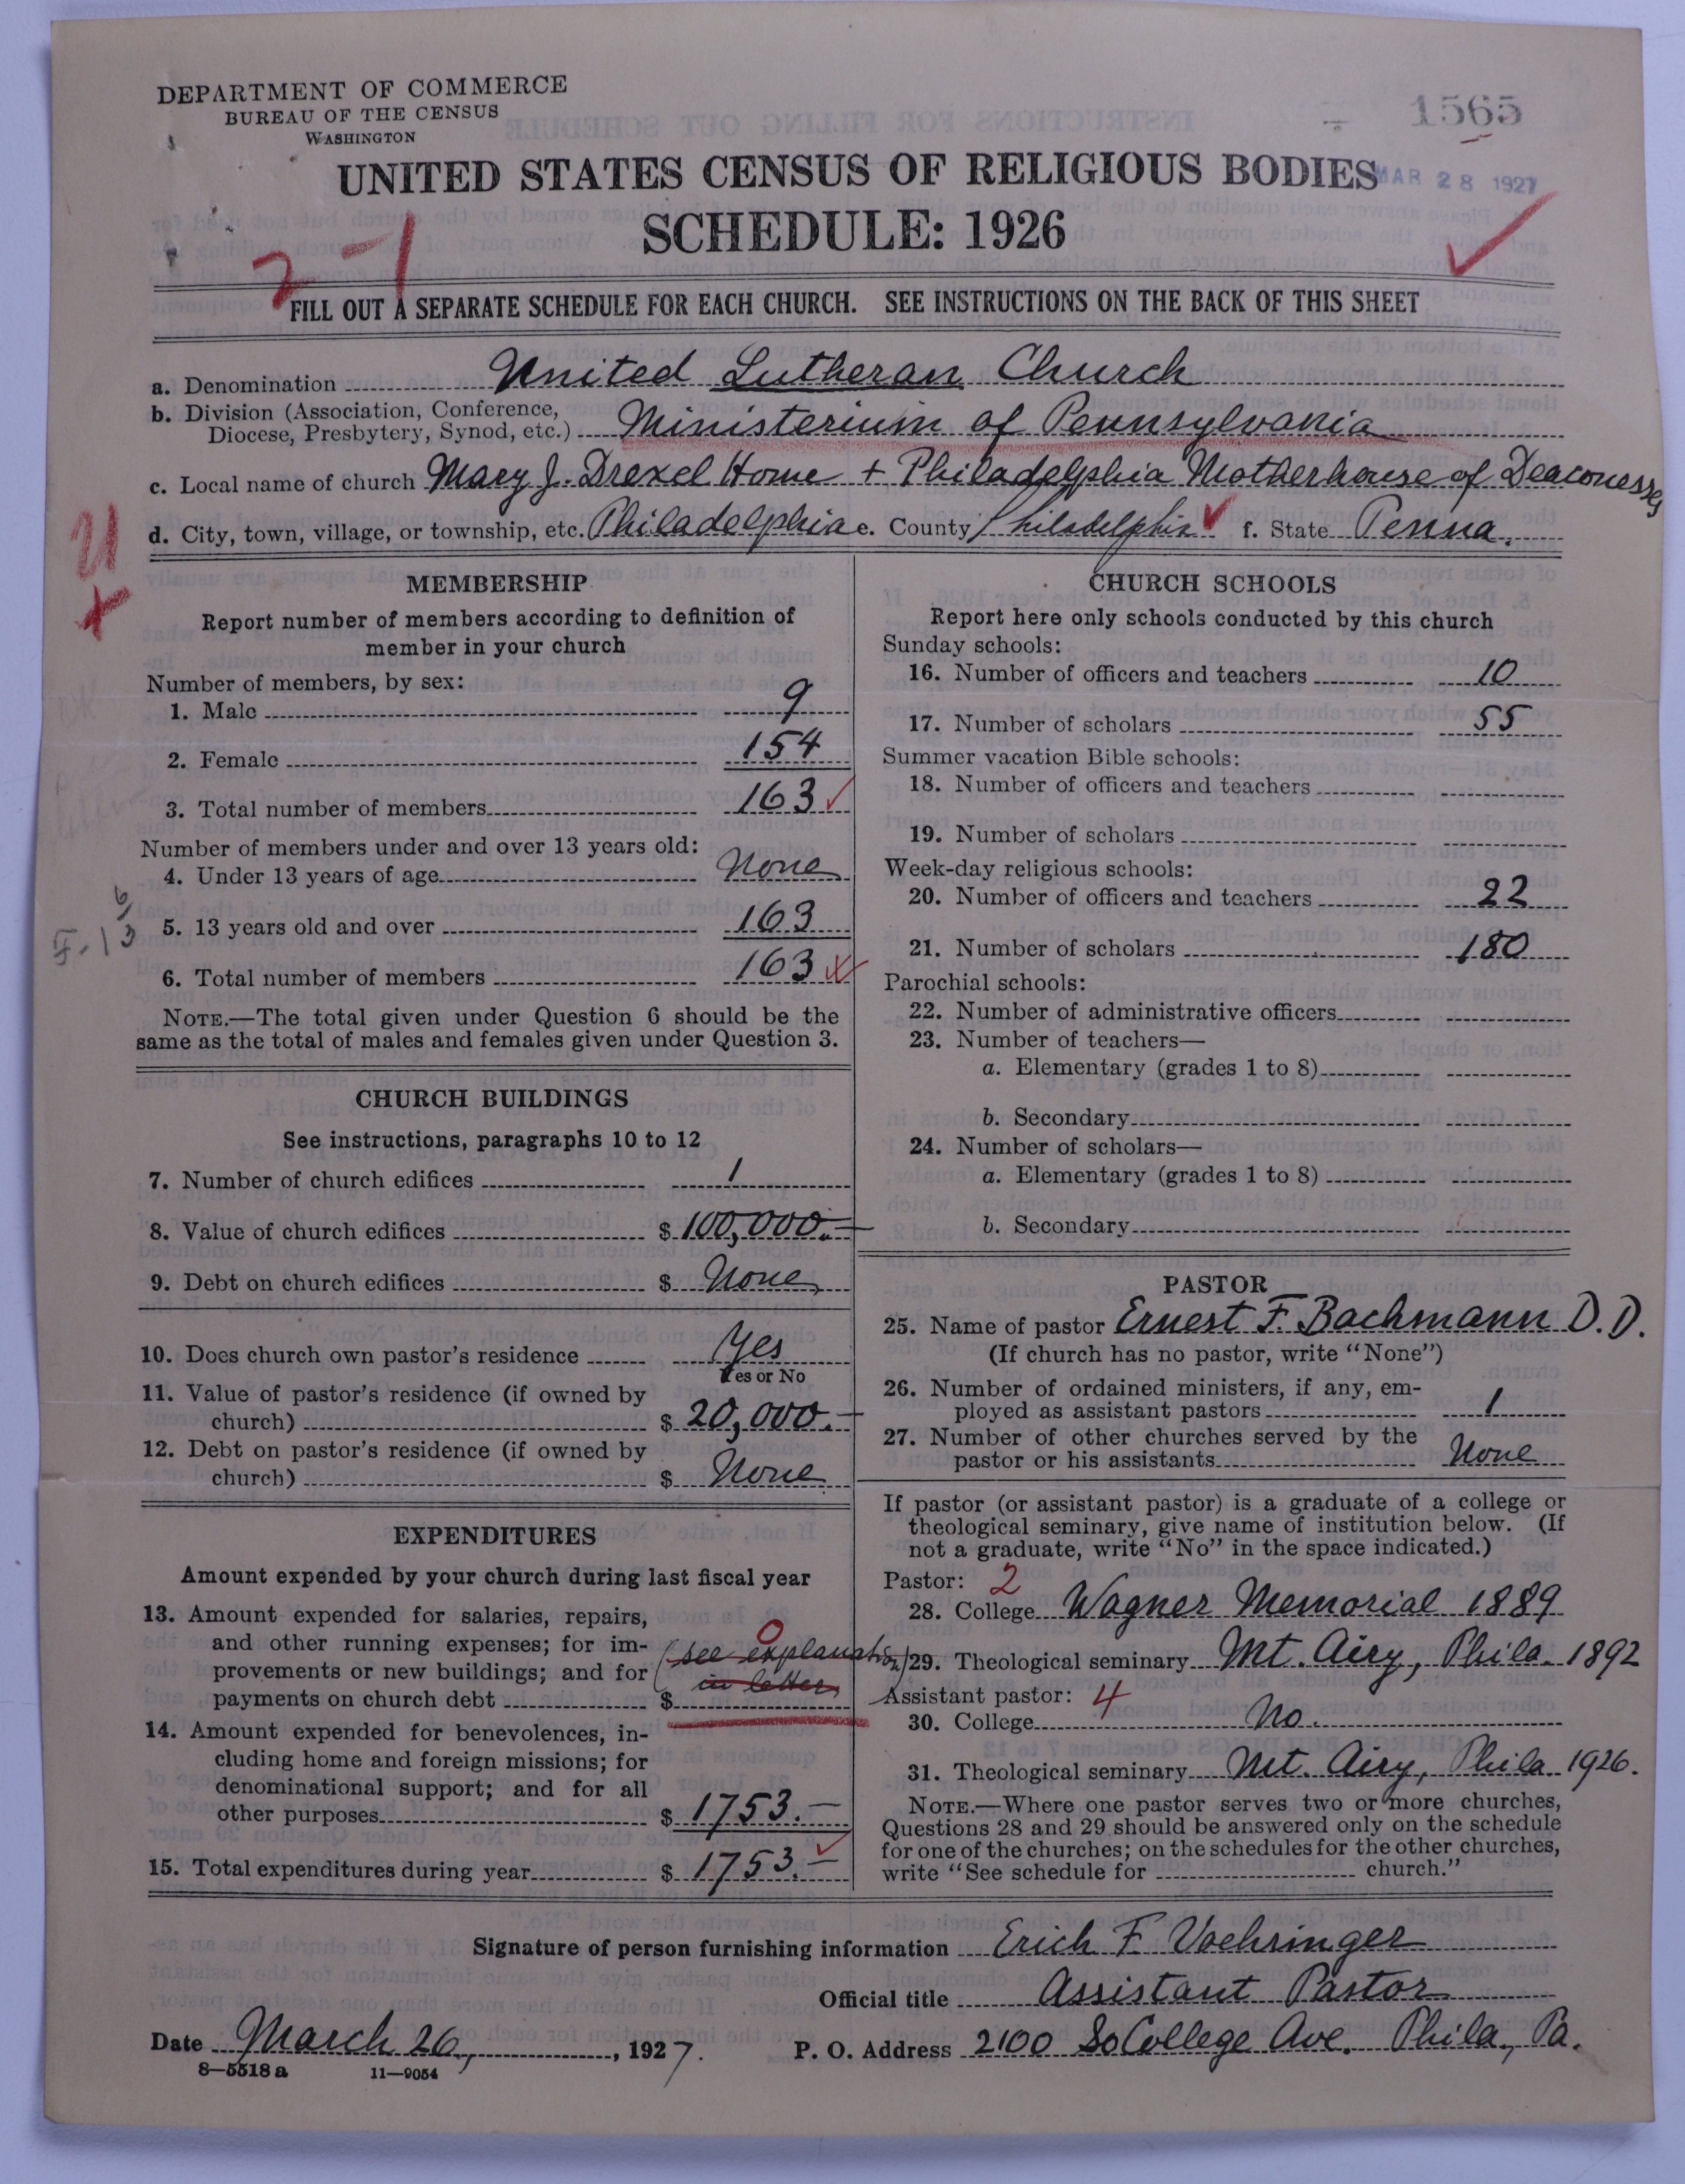 DEPARTMENT OF COMMERCE
BUREAU OF THE CENSUS
WASHINGTON
1565
UNITED STATES CENSUS OF RELIGIOUS BODIES
MAR 28 1927
SCHEDULE: 1926
2-1
FILL OUT A SEPARATE SCHEDULE FOR EACH CHURCH. SEE INSTRUCTIONS ON THE BACK OF THIS SHEET
a. Denomination United Lutheran Church
b. Division (Association, Conference,
Diocese, Presbytery, Synod, etc.) Ministerium of Pennsylvania
c. Local name of church Mary J. Drexel Home + Philadelphia Motherhouse of Deaconesses
d. City, town, village, or township, etc. Philadelphia e. County Philadelphia f. State Penna.
MEMBERSHIP
Report number of members according to definition of
member in your church
Number of members, by sex:
1. Male 9
2. Female 154
3. Total number of members 163
Number of members under and over 13 years old:
4. Under 13 years of age None
5. 13 years old and over 163
6. Total number of members 163
NOTE.—The total given under Question 6 should be the
same as the total of males and females given under Question 3.
CHURCH BUILDINGS
See instructions, paragraphs 10 to 12
7. Number of church edifices 1
8. Value of church edifices $ 100,000.—
9. Debt on church edifices $ None
10. Does church own pastor's residence Yes
Yes or No
11. Value of pastor's residence (if owned by
church) $ 20,000.—
12. Debt on pastor's residence (if owned by
church) $ None
EXPENDITURES
Amount expended by your church during last fiscal year
13. Amount expended for salaries, repairs,
and other running expenses; for im-
provements or new buildings; and for
payments on church debt $
0
(see explanation)
in letter
14. Amount expended for benevolences, in-
cluding home and foreign missions; for
denominational support; and for all
other purposes $ 1753.—
15. Total expenditures during year $ 1753.—
CHURCH SCHOOLS
Report here only schools conducted by this church
Sunday schools:
16. Number of officers and teachers 10
17. Number of scholars 55
Summer vacation Bible schools:
18. Number of officers and teachers
19. Number of scholars
Week-day religious schools:
20. Number of officers and teachers 22
21. Number of scholars 180
Parochial schools:
22. Number of administrative officers
23. Number of teachers—
a. Elementary (grades 1 to 8)
b. Secondary
24. Number of scholars—
a. Elementary (grades 1 to 8)
b. Secondary
PASTOR
25. Name of pastor Ernest F. Bachmann D.D.
(If church has no pastor, write "None")
26. Number of ordained ministers, if any, em-
ployed as assistant pastors 1
27. Number of other churches served by the
pastor or his assistants None
If pastor (or assistant pastor) is a graduate of a college or
theological seminary, give name of institution below. (If
not a graduate, write "No" in the space indicated.)
Pastor: 2
28. College Wagner Memorial 1889
29. Theological seminary Mt. Airy, Phila. 1892
Assistant pastor: 4
30. College No.
31. Theological seminary Mt. Airy, Phila 1926.
NOTE.—Where one pastor serves two or more churches,
Questions 28 and 29 should be answered only on the schedule
for one of the churches; on the schedules for the other churches,
write "See schedule for church."
Signature of person furnishing information Erich F. Voehringer
Official title Assistant Pastor
Date March 26, 1927.
P. O. Address 2100 So College Ave. Phila., Pa.
8—5518 a 11—9054